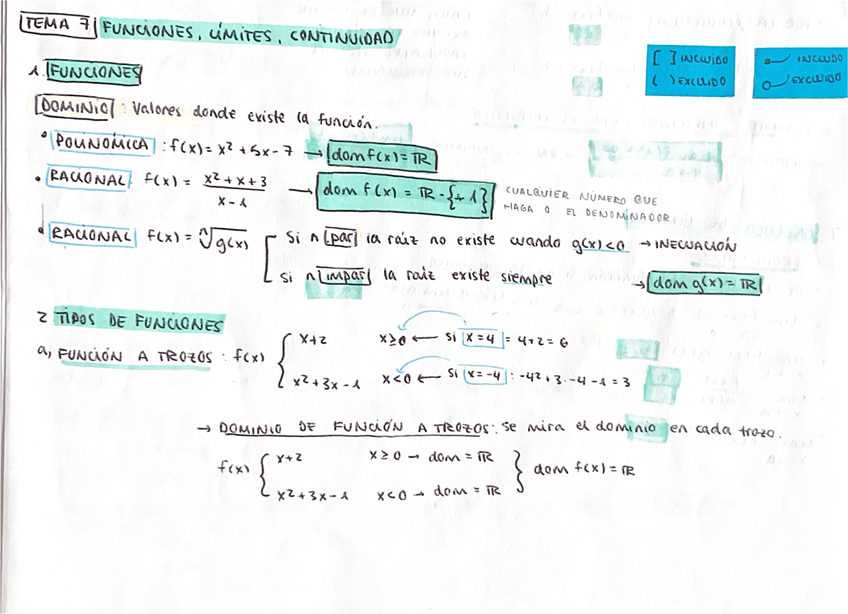 TEMA 7 FUNCIONES, LÍMITES, CONTINUIDAD
[ ] INCLUIDO
( ) EXCLUIDO
INCLUIDO
EXCLUIDO
1. FUNCIONES
DOMINIO: Valores donde existe la función.
• POLINÓMICA: f(x) = x² + 5x - 7 → dom f(x) = ℝ
• RACIONAL f(x) = (x² + x + 3)/(x - 1) → dom f(x) = ℝ - {+1} CUALQUIER NÚMERO QUE
HAGA 0 EL DENOMINADOR
• RACIONAL f(x) = ⁿ√g(x) [ Si n par la raíz no existe cuando g(x) < 0 → INECUACIÓN
si n impar la raíz existe siempre → dom g(x) = ℝ
2 TIPOS DE FUNCIONES
a, FUNCIÓN A TROZOS: f(x) { x+2 x≥0 ← Si x=4 = 4+2 = 6
x²+3x-1 x<0 ← Si x=-4 : -42+3·-4-1 = 3
→ DOMINIO DE FUNCIÓN A TROZOS: Se mira el dominio en cada trozo.
f(x) { x+2 x≥0 → dom = ℝ } dom f(x) = ℝ
x²+3x-1 x<0 → dom = ℝ